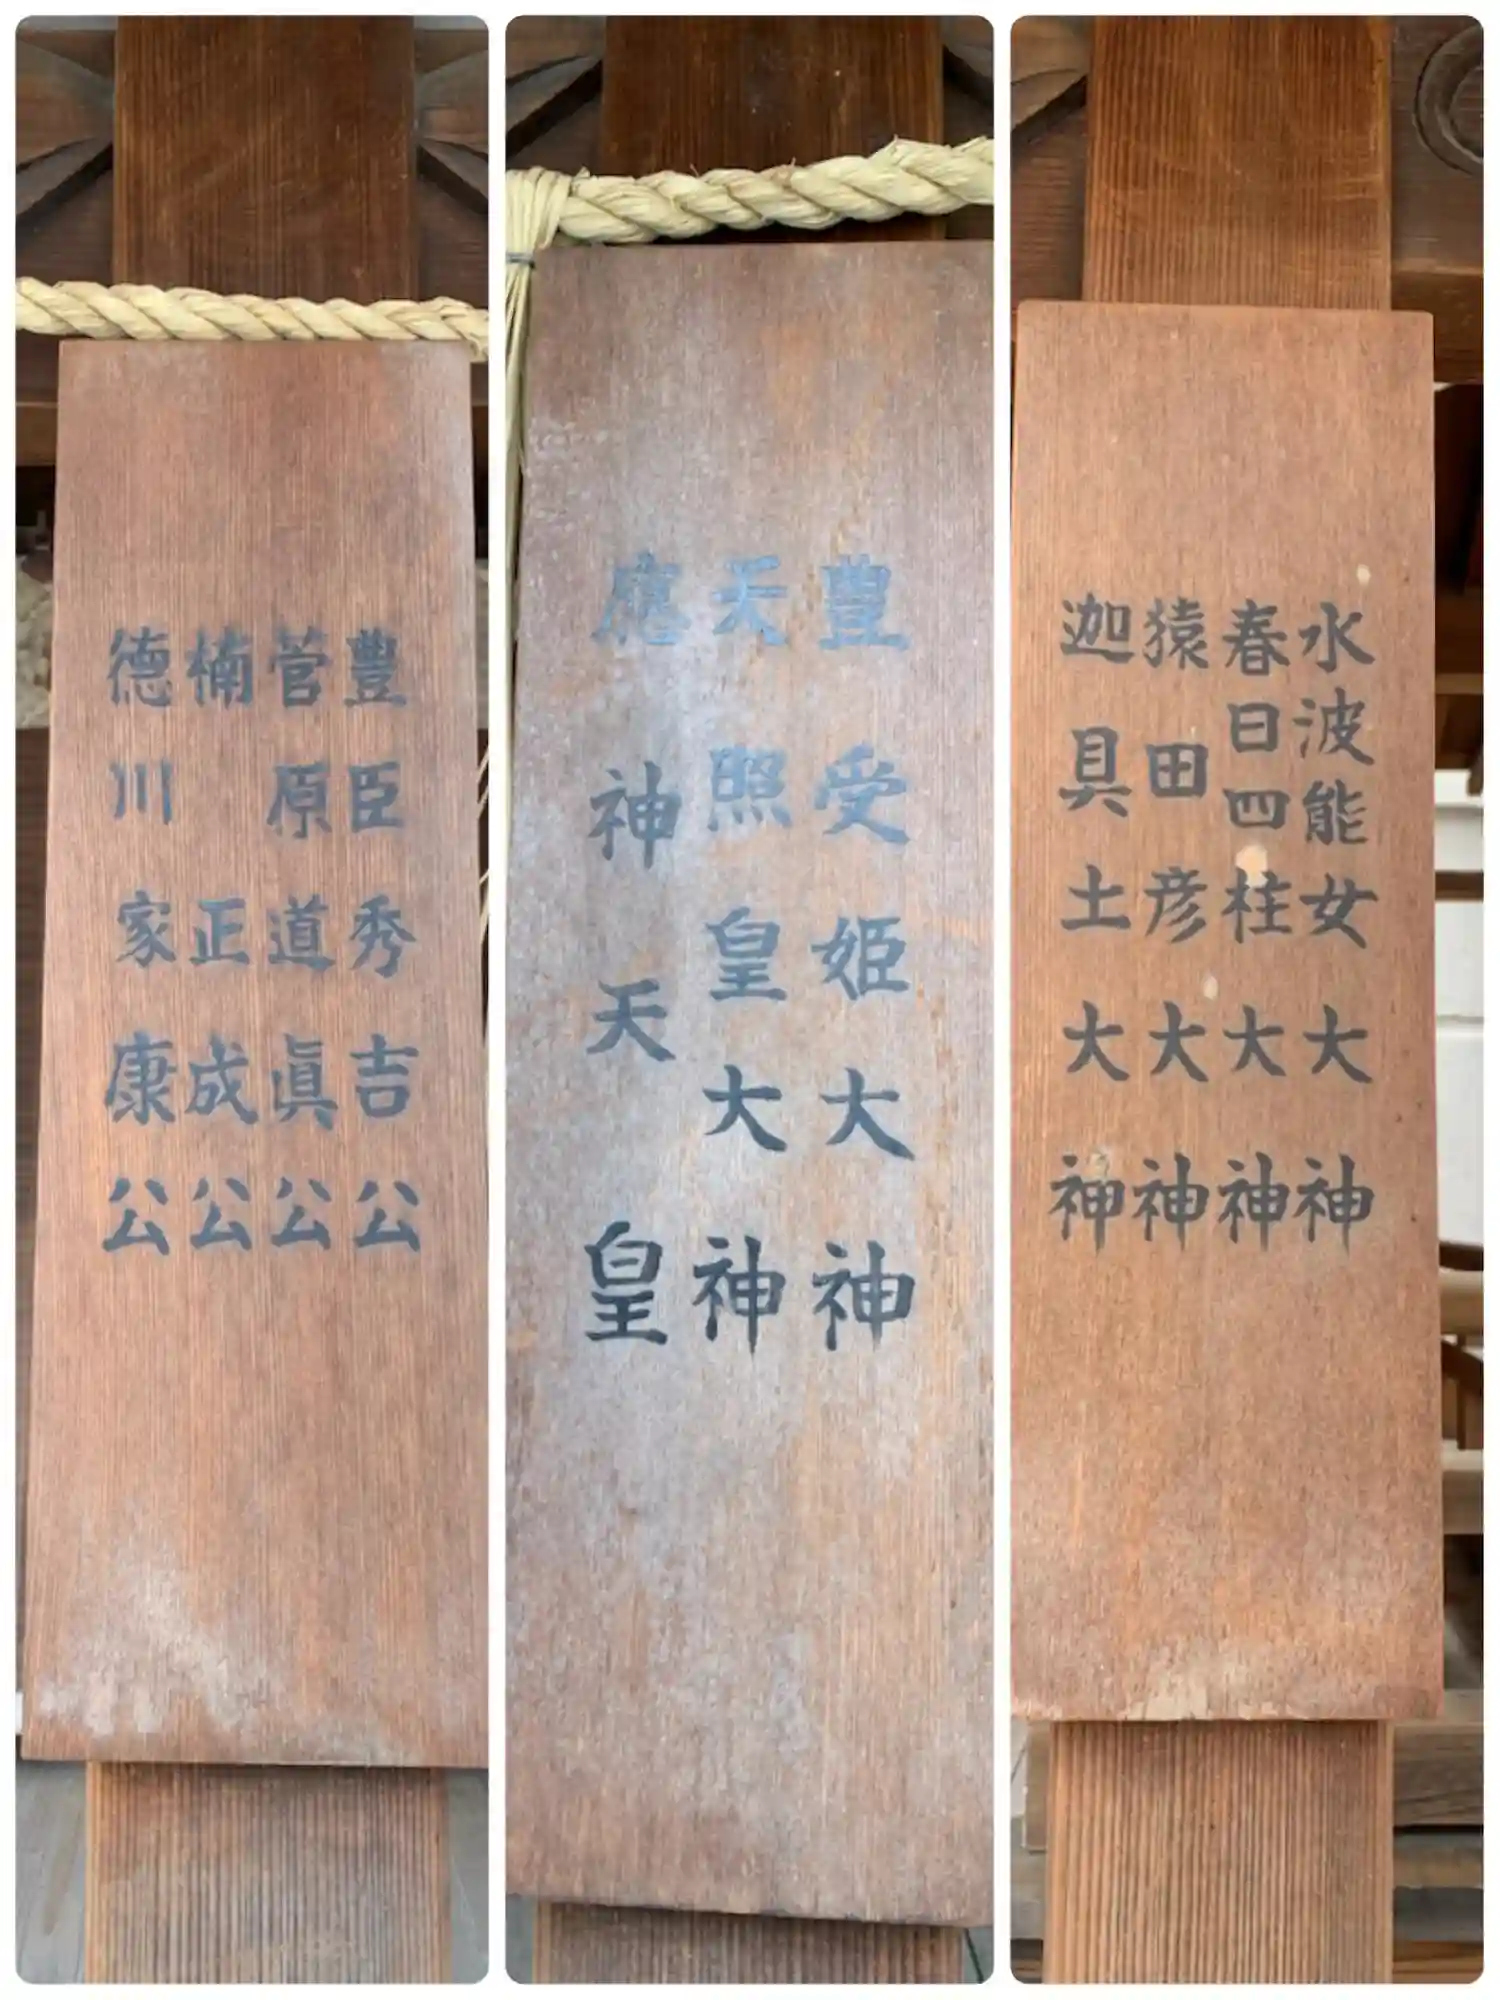 豊臣秀吉公
菅原道眞公
楠正成公
徳川家康公
豊受姫大神
天照皇大神
應神天皇
水波能女大神
春日四柱大神
猿田彦大神
迦具土大神